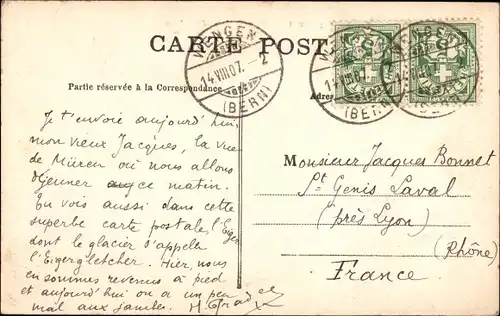 CARTE POSTALE
WENGEN 2
14.VIII.07.
(BERN)
Partie réservée à la Correspondance
Adres
Je t'envoie aujourd'hui,
mon vieux Jacques, la vue
de Mürren où nous allons
déjeuner ce matin.
Tu vois aussi dans cette
superbe carte postale, l'Eiger
dont le glacier s'appelle
l'Eigergletcher. Hier, nous
en sommes revenus à pied
et aujourd'hui on a un peu
mal aux jambes.
Monsieur Jacques Bonnet
St Genis Laval
(près Lyon)
(Rhône)
France